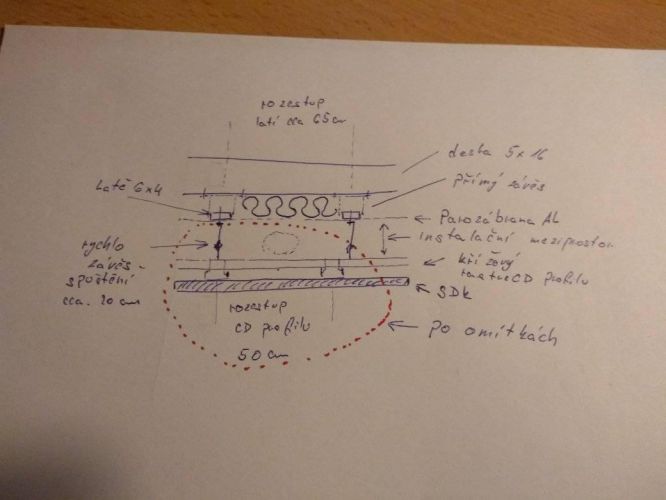 rozestup
latí cca 65cm
deska 5x16
přímý závěs
Latě 6x4
Parozábrana AL
instalační meziprostor
rychlo
závěs -
spuštění
cca. 20 cm
křížový
CD profilu
SDK
rozestup
CD profilu
50 cm
po omítkách